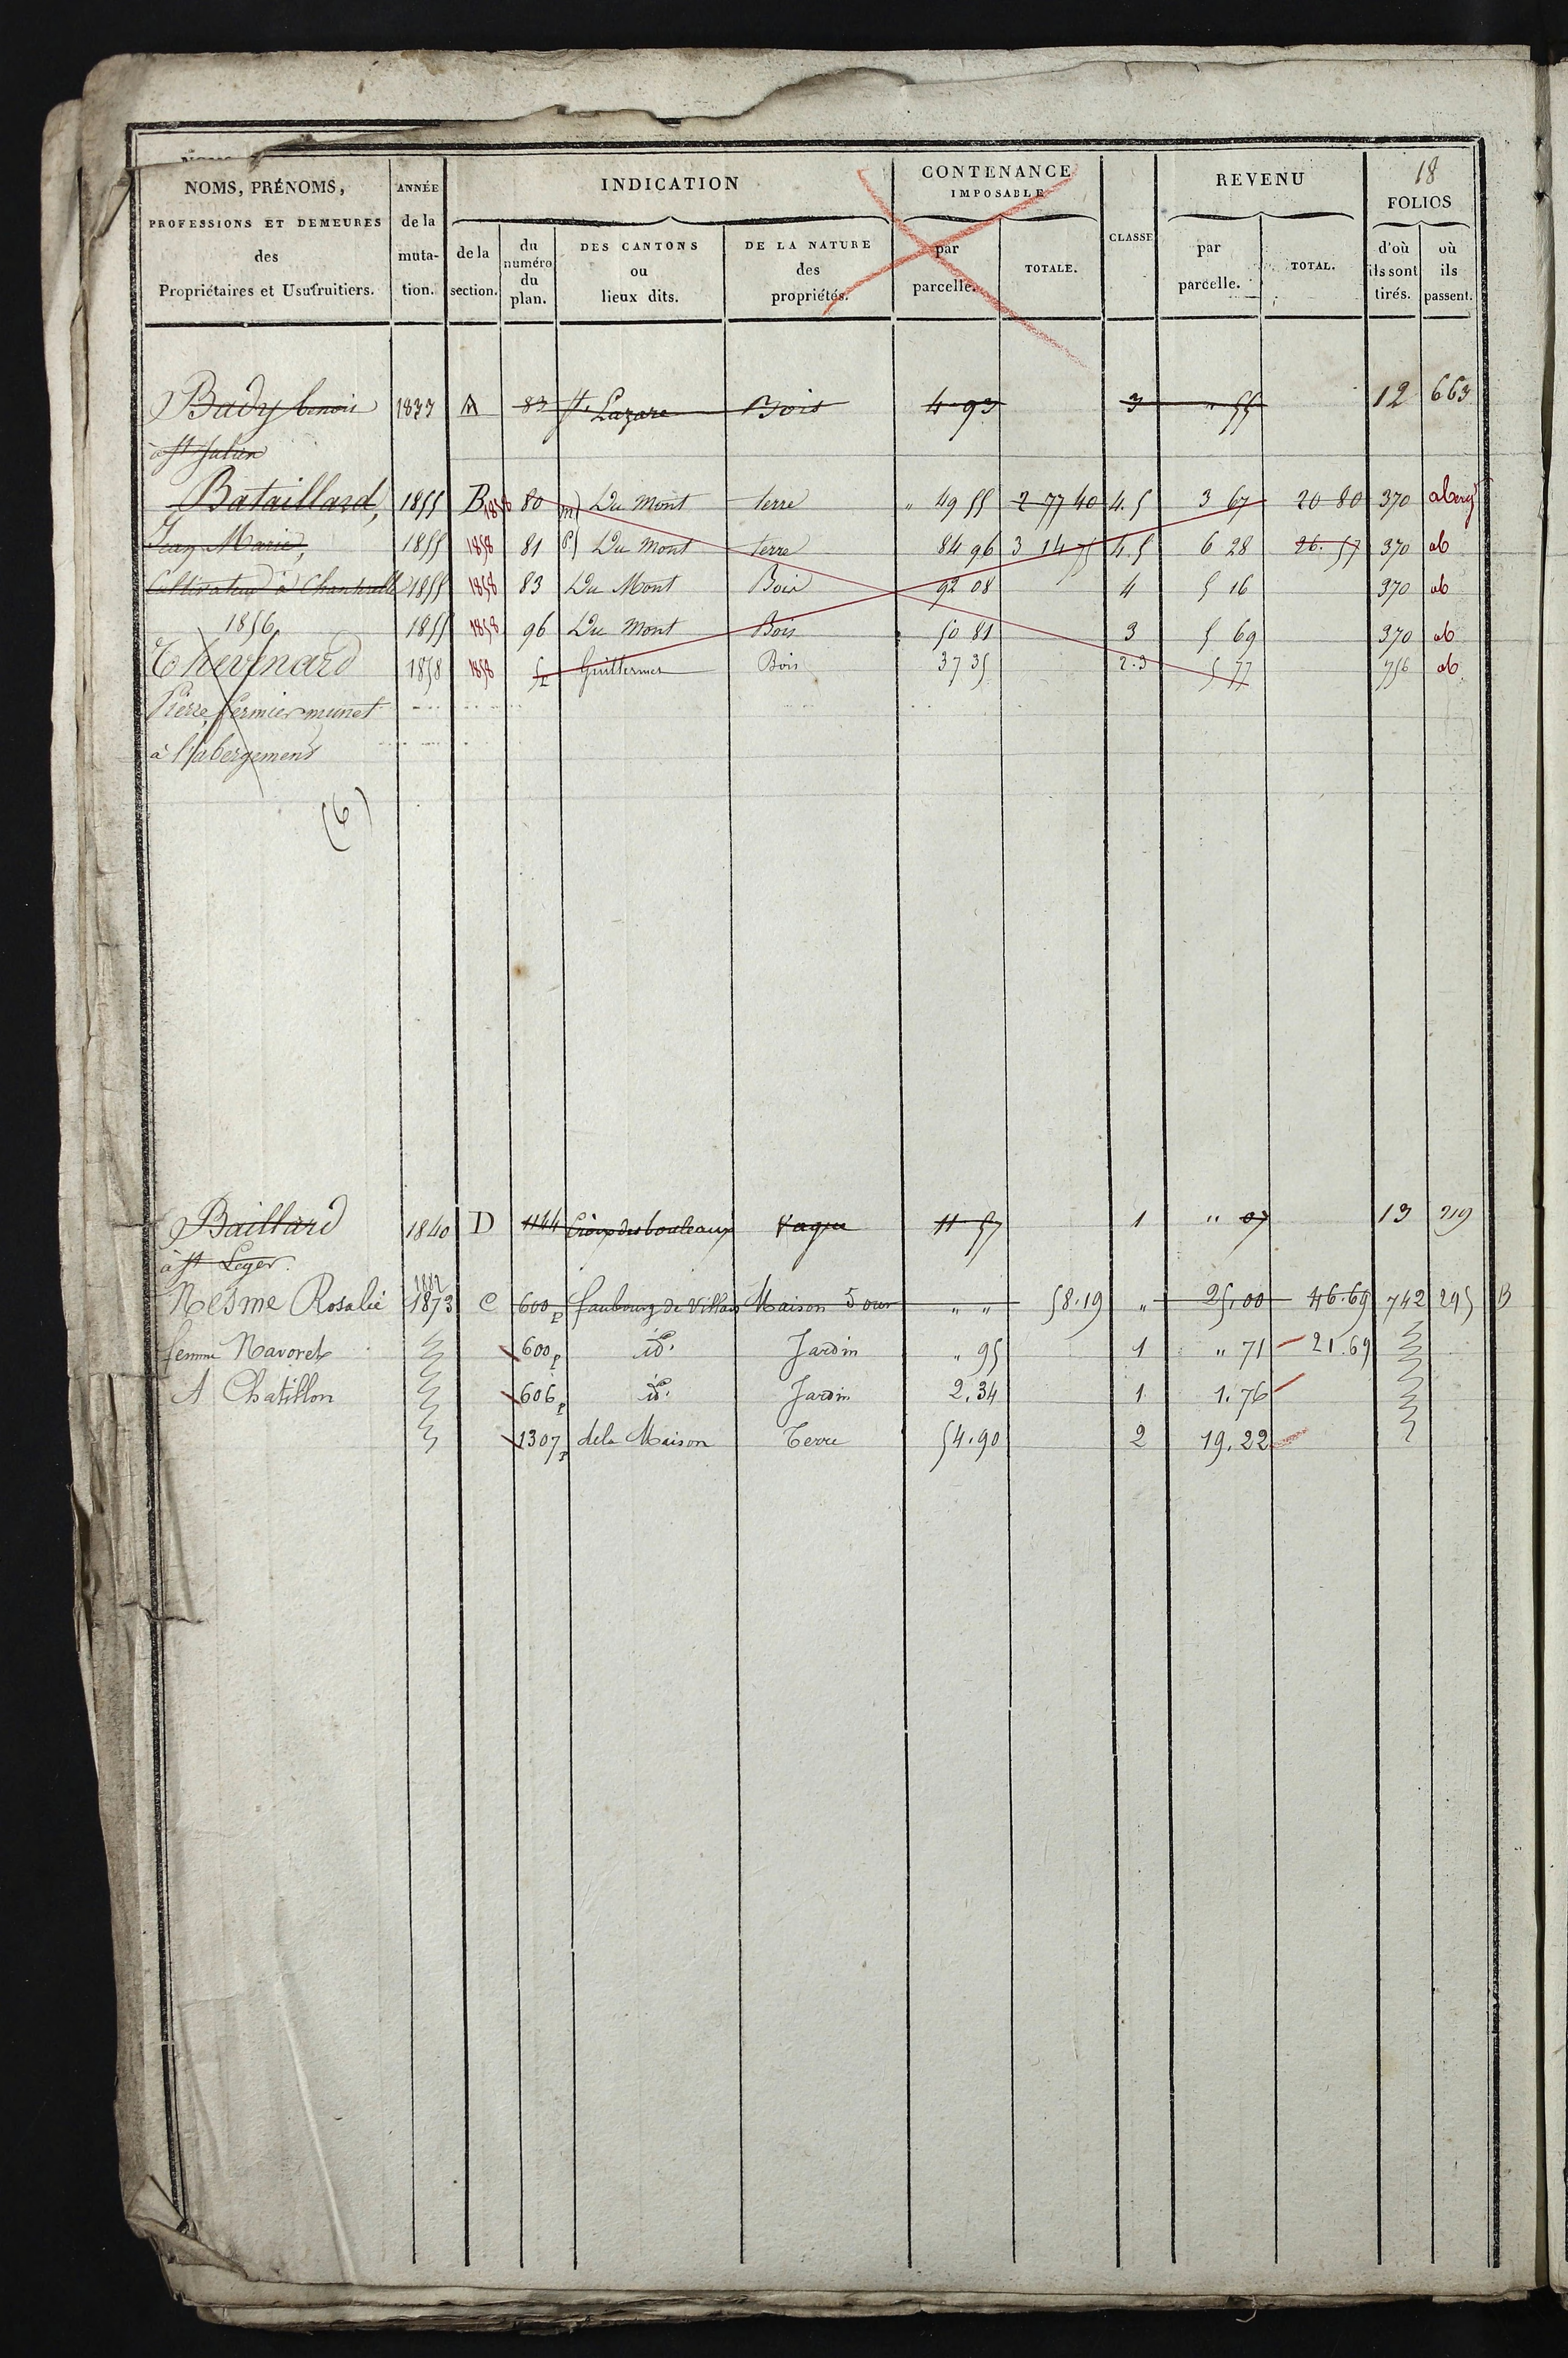 18
NOMS, PRÉNOMS, PROFESSIONS ET DEMEURES des Propriétaires et Usufruitiers.
ANNÉE de la muta- tion.
INDICATION
de la section.
du numéro du plan.
DES CANTONS ou lieux dits.
DE LA NATURE des propriétés.
CONTENANCE IMPOSABLE
par parcelle.
TOTALE.
CLASSE
REVENU
par parcelle.
TOTAL.
FOLIOS
d'où ils sont tirés.
où ils passent.
Bady benoit 1837 A 83 St. Lazare Bois 4 93 3 " 55 12 663
à St Julien
Bataillard, 1855 B 1858 80 Du Mont terre " 49 55 2 77 40 4.5 3 67 20 80 370
Jean Marie, 1855 1858 81 Du Mont terre 84 96 3 14 75 4.5 6 28 26.57 370 ab
Cultivateur à 1855 1858 83 Du Mont Bois 92 08 4 5 16 370 ab
1856 1855 1858 96 Du Mont Bois 50 81 3 5 69 370 ab
Thevenard 1858 1858 Guillermes Bois 37 35 2.3 5 77 756 ab
Pierre, fermier
à l'abergement
(6)
Baillard 1840 D 1144 Croix des bouleaux Vague 11 57 1 " 07 13 219
à St Leger.
1882
Nesme Rosalie 1873 C 600p faubourg de Villars Maison 5 ouv " " 58.19 " 25,00 46.69 742 295 B
femme Navoret 600p id. Jardin " 95 1 " 71 21.69
A Chatillon 606p id. Jardin 2.34 1 1.76
1307p de la Maison Terre 54.90 2 19.22